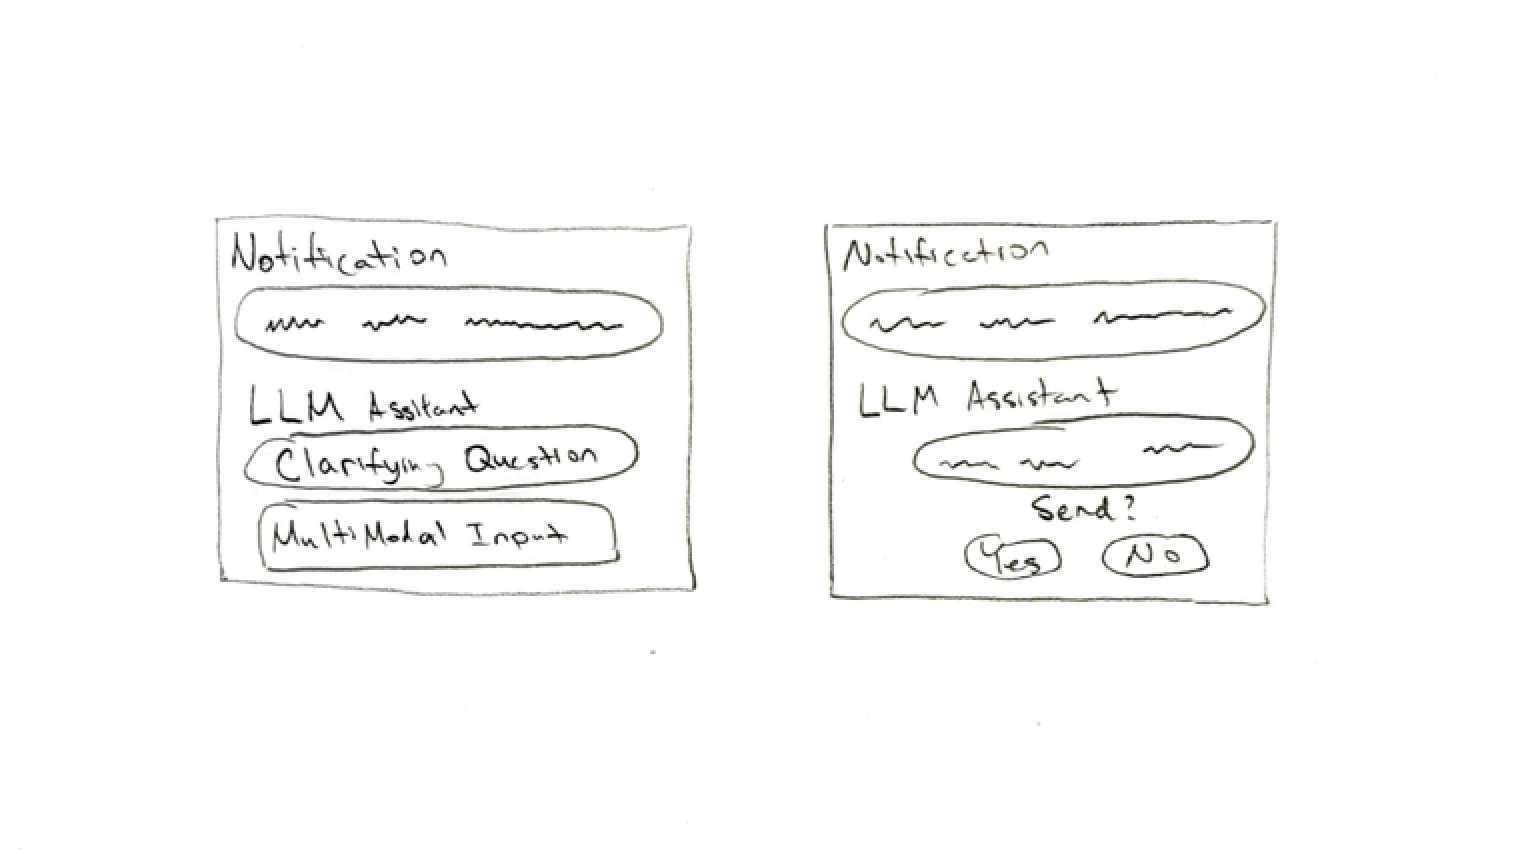 Notification
LLM Assitant
Clarifying Question
MultiModal Input
Notification
LLM Assistant
Send?
Yes
No